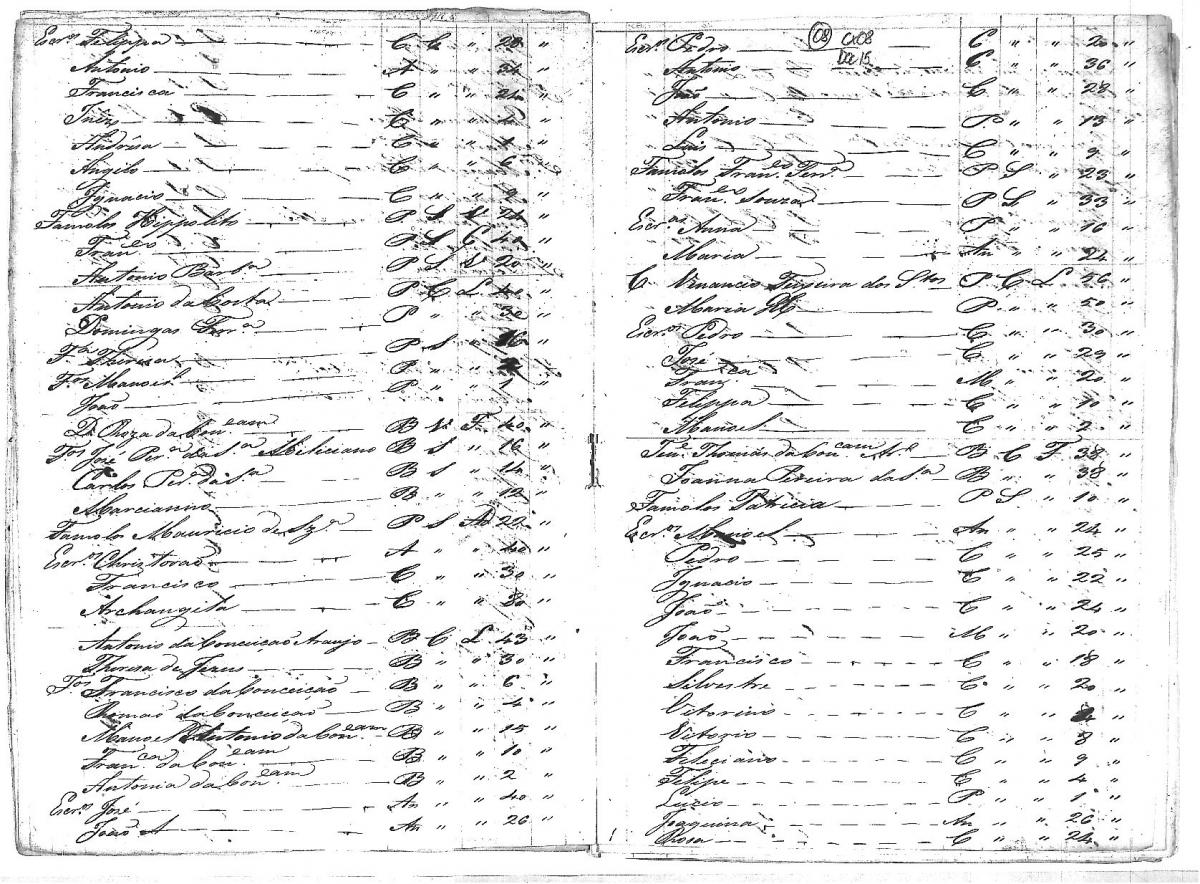 Escr.os Felippa C C " 28 "
Antonio A " " 34 "
Francisca C " " 24 "
Ignês C " " 4 "
C " " 4 "
Angelo C " " 6 "
Ignacio C " " 9 "
Famolos Hippolito P S 74 "
Fran.co P S C 40 "
Antonio Barb.a P S 20 "
Antonio da Costa P C L 40 "
Domingas Ferr.a P " " 30 "
F.a Thereza P S " 16 "
F.os Manoel P " " "
João P " " 1 "
D. Roza da Con.cam B V. F. 40 "
F.os José Per.a da S.a Meliciano B S " 16 "
Carlos Per.a da S.a B S " 14 "
Marcianno B " " 12 "
Famolos Mauricio de Sz.a P S 22 "
Escr.os Christovaõ A " " 40 "
Francisco C " " 30 "
Archangela C " " 30 "
Antonio da Conceicaõ Araujo B C L 43 "
Thereza de Jezus B " " 30 "
F.os Francisco da Conceicaõ B " " 6 "
Romaõ da Conceicaõ B " " 4 "
Manoel Antonio da Con.cam B " " 15 "
Fran.ca da Con.cam B " " 10 "
Antonia da Con.cam B " " 2 "
Escr.os José An " " 40 "
João A An " " 26 "
08 Cx08
D2 15
Escr.os Pedro C " " 20 "
Antonio C " " 36 "
João C " " 28 "
Antonio P " " 13 "
Luis C " " 9 "
Famolos Fran.co Ferr.a P S " 23 "
Fran.co Souza P S " 33 "
Escr.as Anna P " " 16 "
Maria An " " 24 "
C. Venancio Teixeira dos Stos P C L 56 "
Maria P " " 50 "
Escr.os Pedro C " " 30 "
José C " " 29 "
Fran.ca M " " 20 "
Felippa C " " 10 "
Manoel C " " 2 "
Ten.e Thomás da Con.cam B C F 38 "
Joanna Pereira da S.a B " " 38 "
Famolos Patricia P S " 10 "
Escr.os Manoel An " " 24 "
Pedro C " " 25 "
Ignacio C " " 22 "
João C " " 24 "
João M " " 20 "
Francisco C " " 18 "
Silvestre C " " 20 "
Vitorino C " " "
Vitorio C " " 8 "
Feliciano C " " 9 "
Felipe C " " 4 "
Luzio P " " 1 "
Joaquina An " " 26 "
Rosa C " " 24 "